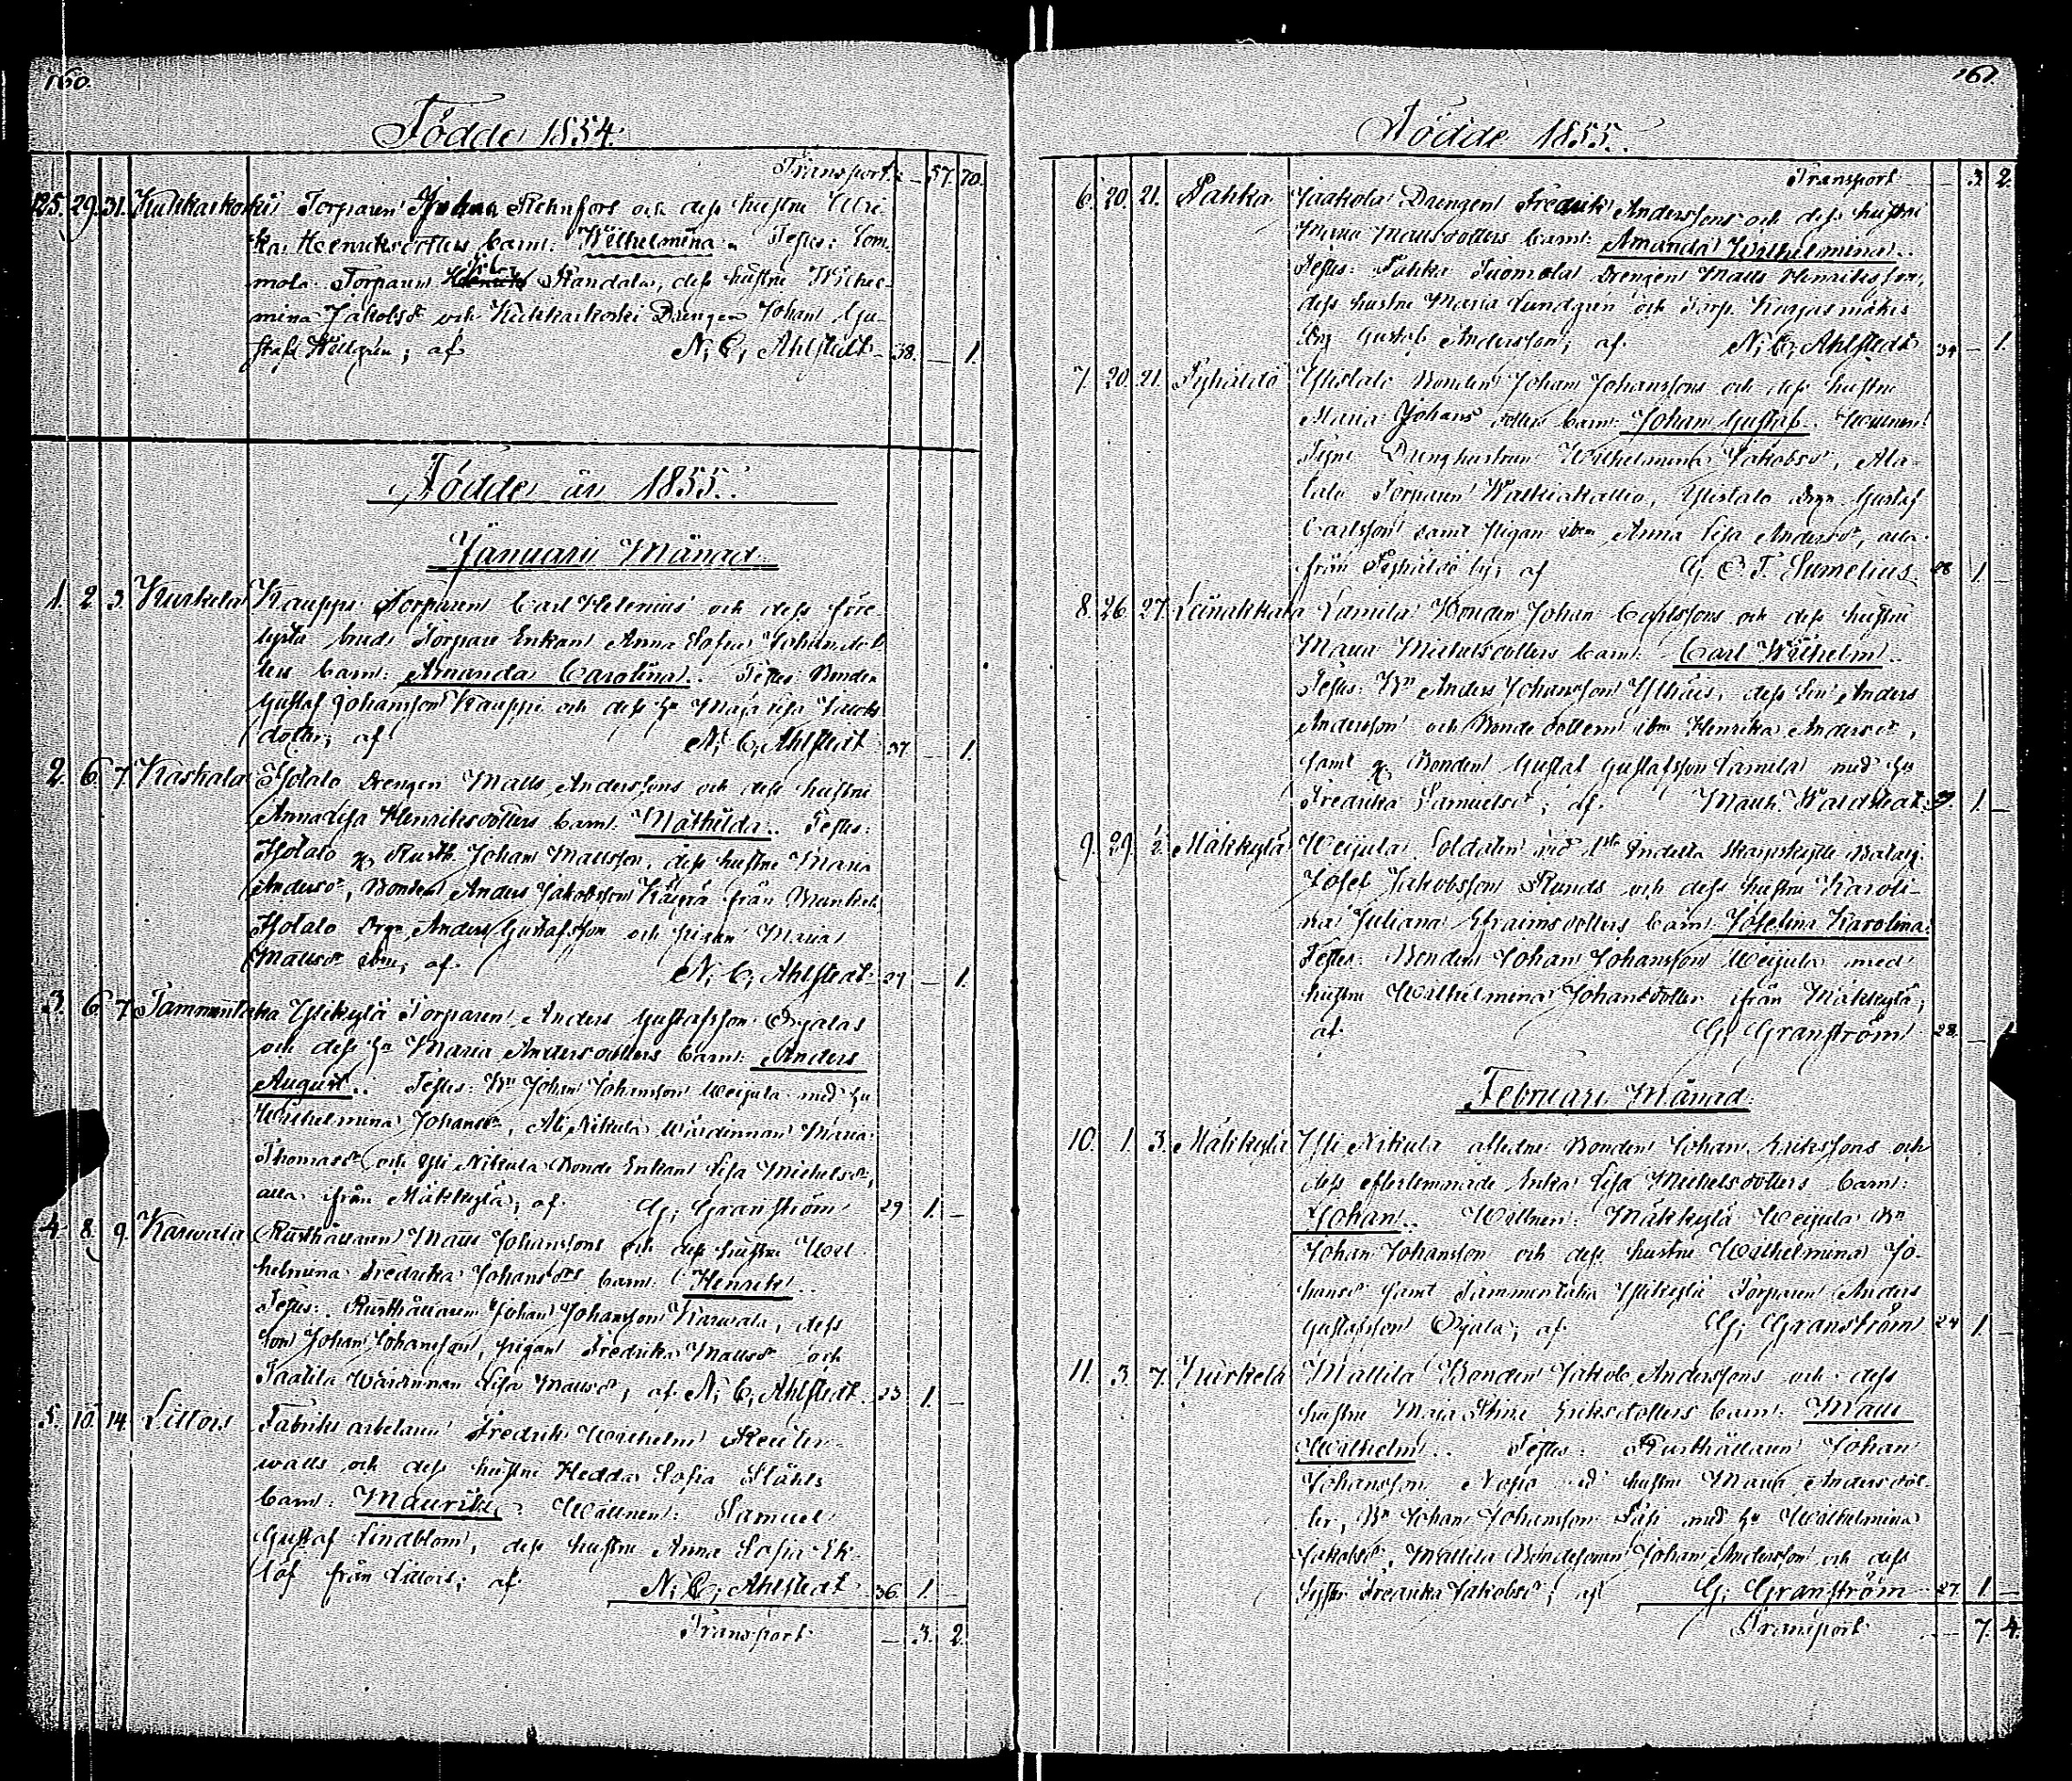 160.
Födde 1854.
Transport. — 57. 70.
125. 29. 31. Kuhkarkoski Torparen Johan Rehnfors och dess hustru Ulri-
ka Henriksdotters barn: Wilhelmina. Testes: Tom-
mola Torparen Randala, dess hustru Wilhel-
mina Jakobsdr och Kuhkarkoski Drengen Johan Gu-
staf Hellgren; af N. C. Ahlstedt 38. — 1.
Födde år 1855.
Januari Månad.
1. 2. 3. Kurkela Kauppi Torparen Carl Helenius och dess före
Torpare Enkan Anna Sofia Johansdot-
ters barn: Amanda Carolina. Testes: Bonden
Gustaf Johansson Kauppi och dess hu Maja Lisa Jacobs
dotter; af N. C. Ahlstedt 37 — 1.
2. 6. 7. Kaskala Isotalo Drengen Matts Anderssons och dess hustru
Anna Lisa Henriksdotters barn: Mathilda. Testes:
Isotalo Rusth. Johan Mattsson, dess hustru Maria
Andersdr, Bonden Anders Jakobsson Käyrä från
Isotalo Drgn Anders Gustafsson och pigan Maria
Mattsdr ibm, af N. C. Ahlstedt 27 — 1.
3. 6. 7. Tammentaka Ylikylä Torparen Anders Gustafsson Ojalas
och dess hu Maria Andersdotters barn: Anders
August. Testes: Bn Johan Johansson Weijula med hu
Wilhelmina Johansdr, Ali Nikula Wärdinnan Maria
Thomasdr och Yli Nikula Bonde Enkan Lisa Michelsdr,
alla ifrån Mäkkylä; af G. Granström 29 1. —
4. 8. 9. Karwala Rusthållaren Matts Johanssons och dess hustru Wil-
helmina Fredrika Johansdrs barn: Henrik.
Testes: Rusthållaren Johan Johansson Karwala, dess
son Johan Johansson, pigan Fredrika Mattsdr och
Taatila Wärdinnan Lisa Mattsdr; af N. C. Ahlstedt 23 1. —
5. 10. 14. Littois Fabriks arbetaren Fredrik Wilhelm Reuter-
walls och dess hustru Hedda Sofia Ståhls
barn: Mauritz. Wittnen: Samuel
Gustaf Lindblom, dess hustru Anna Sofia Ek-
löf från Littois; af N. C. Ahlstedt 36 1.
Transport — 3. 2.
161.
Födde 1855.
Transport — 3 2.
6. 20. 21. Pahka Jaakola Drengen Fredrik Anderssons och dess hustru
Maria Mattsdotters barn: Amanda Wilhelmina.
Testes: Pahka Tuomola Drengen Matts Henriksson,
dess hustru Maria Lundgren och Torp.
Gustaf Andersson; af N. C. Ahlstedt 34 — 1.
7. 20. 21. Pyhältö Ylistalo Bonden Johan Johanssons och dess hustru
Maria Johans dotters barn: Johan Gustaf. Wittnen:
Drenghustrun Wilhelmina Jakobsdr, Ala-
talo Torparen Walkiakallio, Ylistalo Drgn Gustaf
Carlsson samt pigan ibm Anna Lisa Andersdr, alla
från Pyhältö by; af G. E. T. Sumelius 28 1. —
8. 26. 27. Leinakkala Lamila Bonden Johan Carlssons och dess hustru
Maria Michelsdotters barn: Carl Wilhelm.
Testes: Bn Anders Johansson Ylhäis, dess son Anders
Andersson och Bonde dottern ibm Henrika Andersdr,
samt Bonden Gustaf Gustafsson Lamila med hu
Fredrika Samuelsdr; af Waldstedt 39. 1. —
9. 29. 1/2. Mäkkylä Weijula Soldaten vid Indelta Skarpskytte Batalj.
Josef Jakobsson Runds och dess hustru Karoli-
na Juliana Efraimsdotters barn Josefina Karolina.
Testes: Bonden Johan Johansson Weijula med
hustru Wilhelmina Johansdotter ifrån Mäkkylä;
af G. Granström 28. —
Februari Månad.
10. 1. 3. Mäkkylä Yli Nikula aflidne Bonden Johan Erikssons och
dess efterlemnade Enka Lisa Michelsdotters barn:
Johan. Wittnen: Mäkkylä Weijula Bn
Johan Johansson och dess hustru Wilhelmina Jo-
hansdr samt Tammentaka Ylikylä Torparen Anders
Gustafsson Ojala; af G. Granström 24 1. —
11. 3. 7. Kurkela Mattila Bonden Jakob Anderssons och dess
hustru Maja Stina Eriksdotters barn: Matts
Wilhelm. Testes: Rusthållaren Johan
Johansson hustru Maria Andersdot-
ter, Bn Johan Johansson med hu Wilhelmina
Jakobsdr, Mattila Bondesonen Johan Andersson och dess
syster Fredrika Jakobsdr; af G. Granström 27 1. —
Transport — 7. 4.